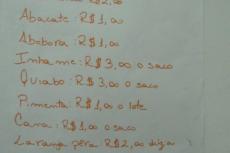 R$2,00
Abacate: R$1,00
Abobora: R$1,00
Inhame: R$3,00 o saco
Quiabo: R$3,00 o saco
Pimenta: R$1,00 o lote
Cana: R$1,00 o saco
Laranja pera R$2,00 duzia